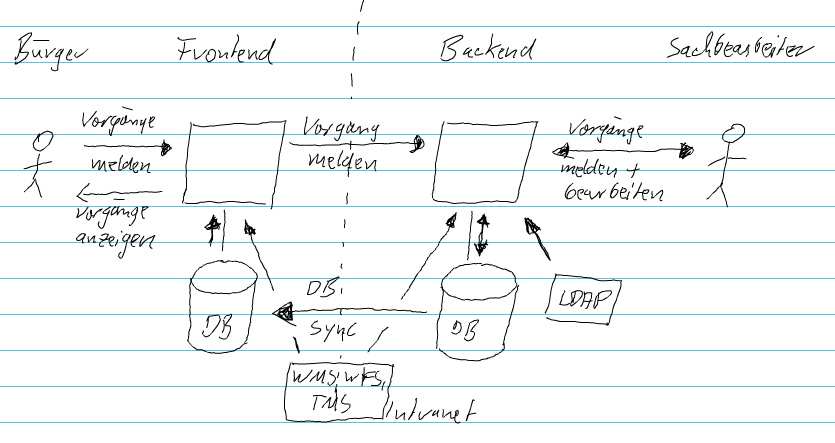 Bürger
Frontend
Backend
Sachbearbeiter
Vorgänge
melden
Vorgänge
anzeigen
Vorgang
melden
Vorgänge
melden +
bearbeiten
DB
DB
Sync
DB
LDAP
WMS, WFS,
TMS
Intranet